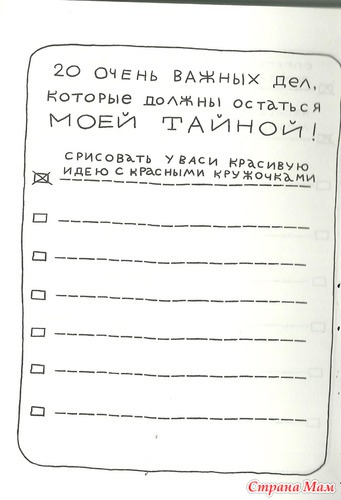 20 ОЧЕНЬ ВАЖНЫХ ДЕЛ,
КОТОРЫЕ ДОЛЖНЫ ОСТАТЬСЯ
МОЕЙ ТАЙНОЙ!
СРИСОВАТЬ У ВАСИ КРАСИВУЮ
ИДЕЮ С КРАСНЫМИ КРУЖОЧКАМИ
Страна Мам